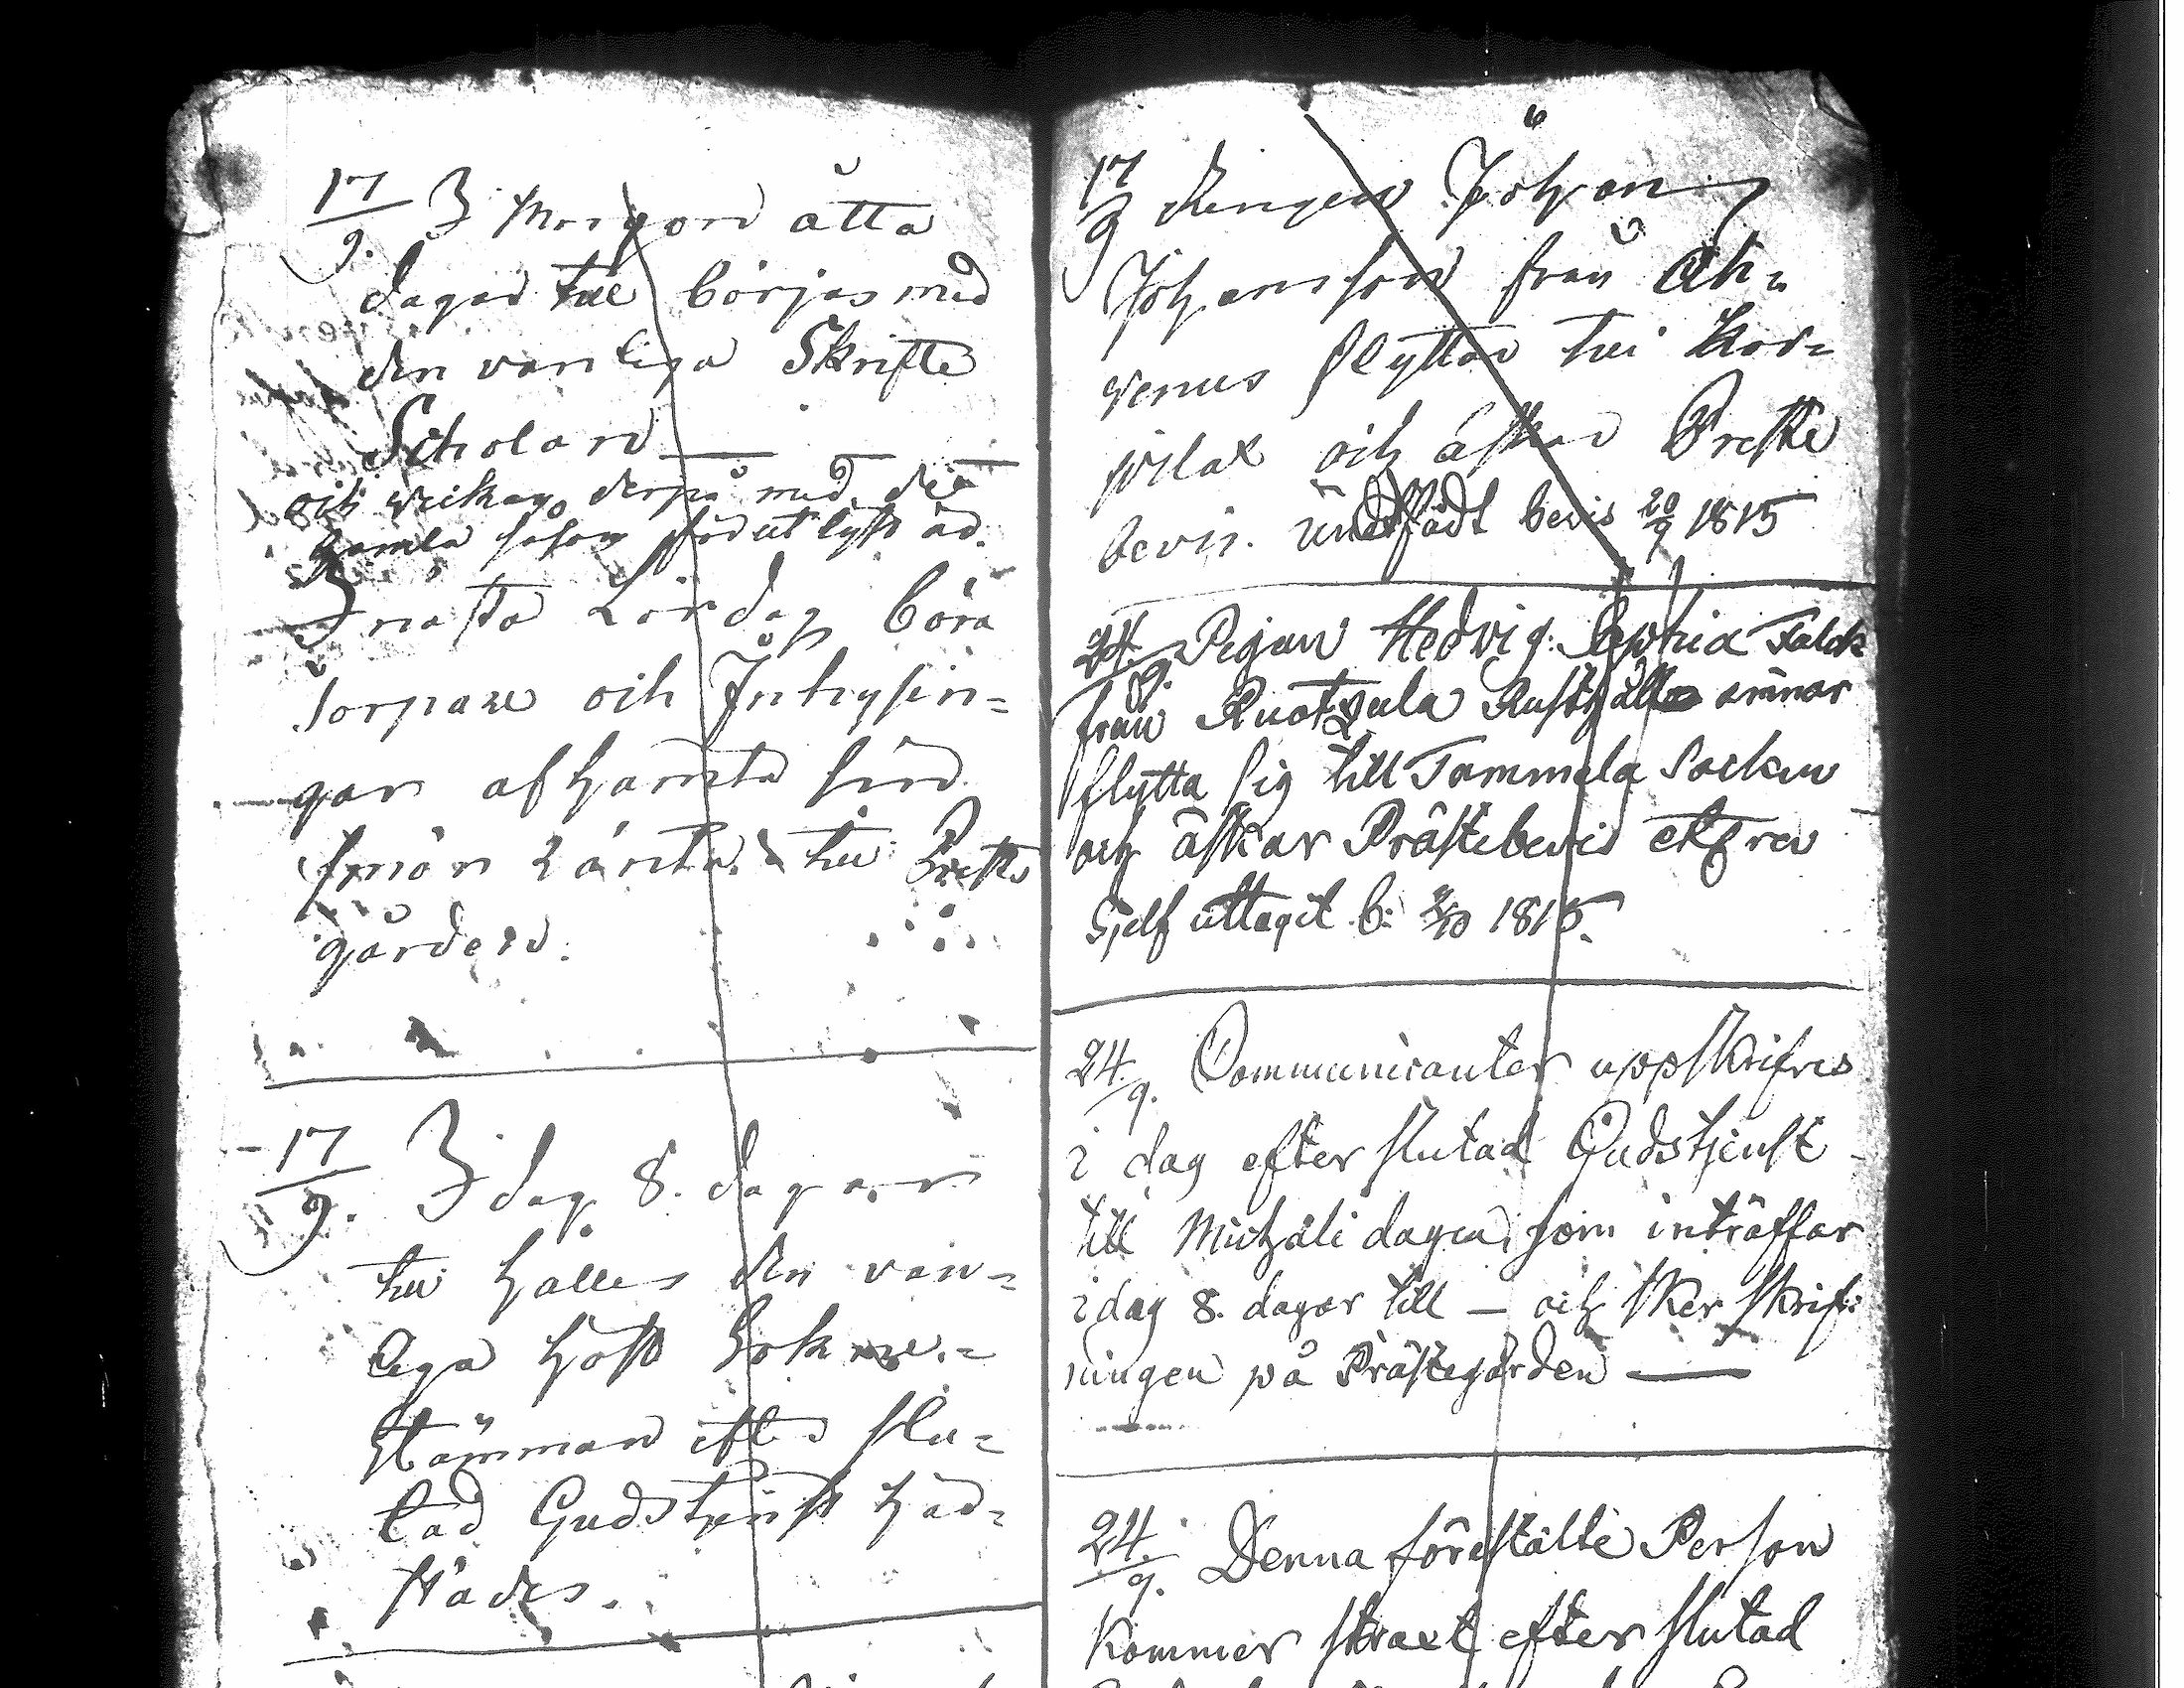 17/9. I Morgon åtta
dagar till börjas med
den vanliga Skrifte
Scholan —
och veckan derpå med de
gamla såsom förut lyst är.
I nästa Lördag böra
Torpare och Inhysin=
gar afhämta sina
smör ränta till Preste
gården.
17/9. I dag 8. dagar
till hålles den van=
liga höst Sockne=
stämman efter slu=
tad Gudstjenst här=
städes.
6
17/9 Drengen Johan
Johansson från Ah=
venus flyttar till Kor=
pilax och äskar Preste
bevis. undfådt bevis 20/9 1815
24/9. Pigan Hedvig Sophia Falck
från Rusthåll ämnar
flytta sig till Tammela Socken
och äskar Prästebevis
Sjelf uttagit b. 2/10 1815.
24/9. Communicanter uppskrifves
i dag efter slutad Gudstjenst
till Michäli dagen, som inträffar
i dag 8. dagar till — och sker skrift=
ningen på Prästegården —
24/9. Denna förestälte Person
Kommer straxt efter slutad